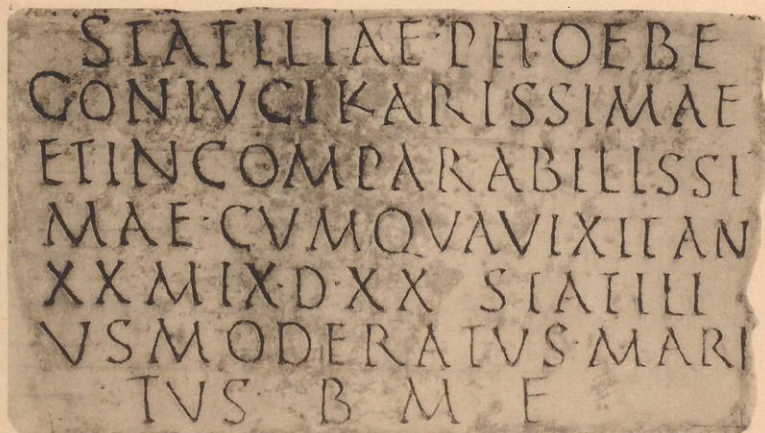 STATILLIAE·PH·OEBE
CONIVCI KARISSIMAE
ETINCOMPARABILISSI
MAE·CVMQVAVIXITAN
XXMIX·D·XX STATILLI
VSMODERATVS·MARI
TVS· B M F